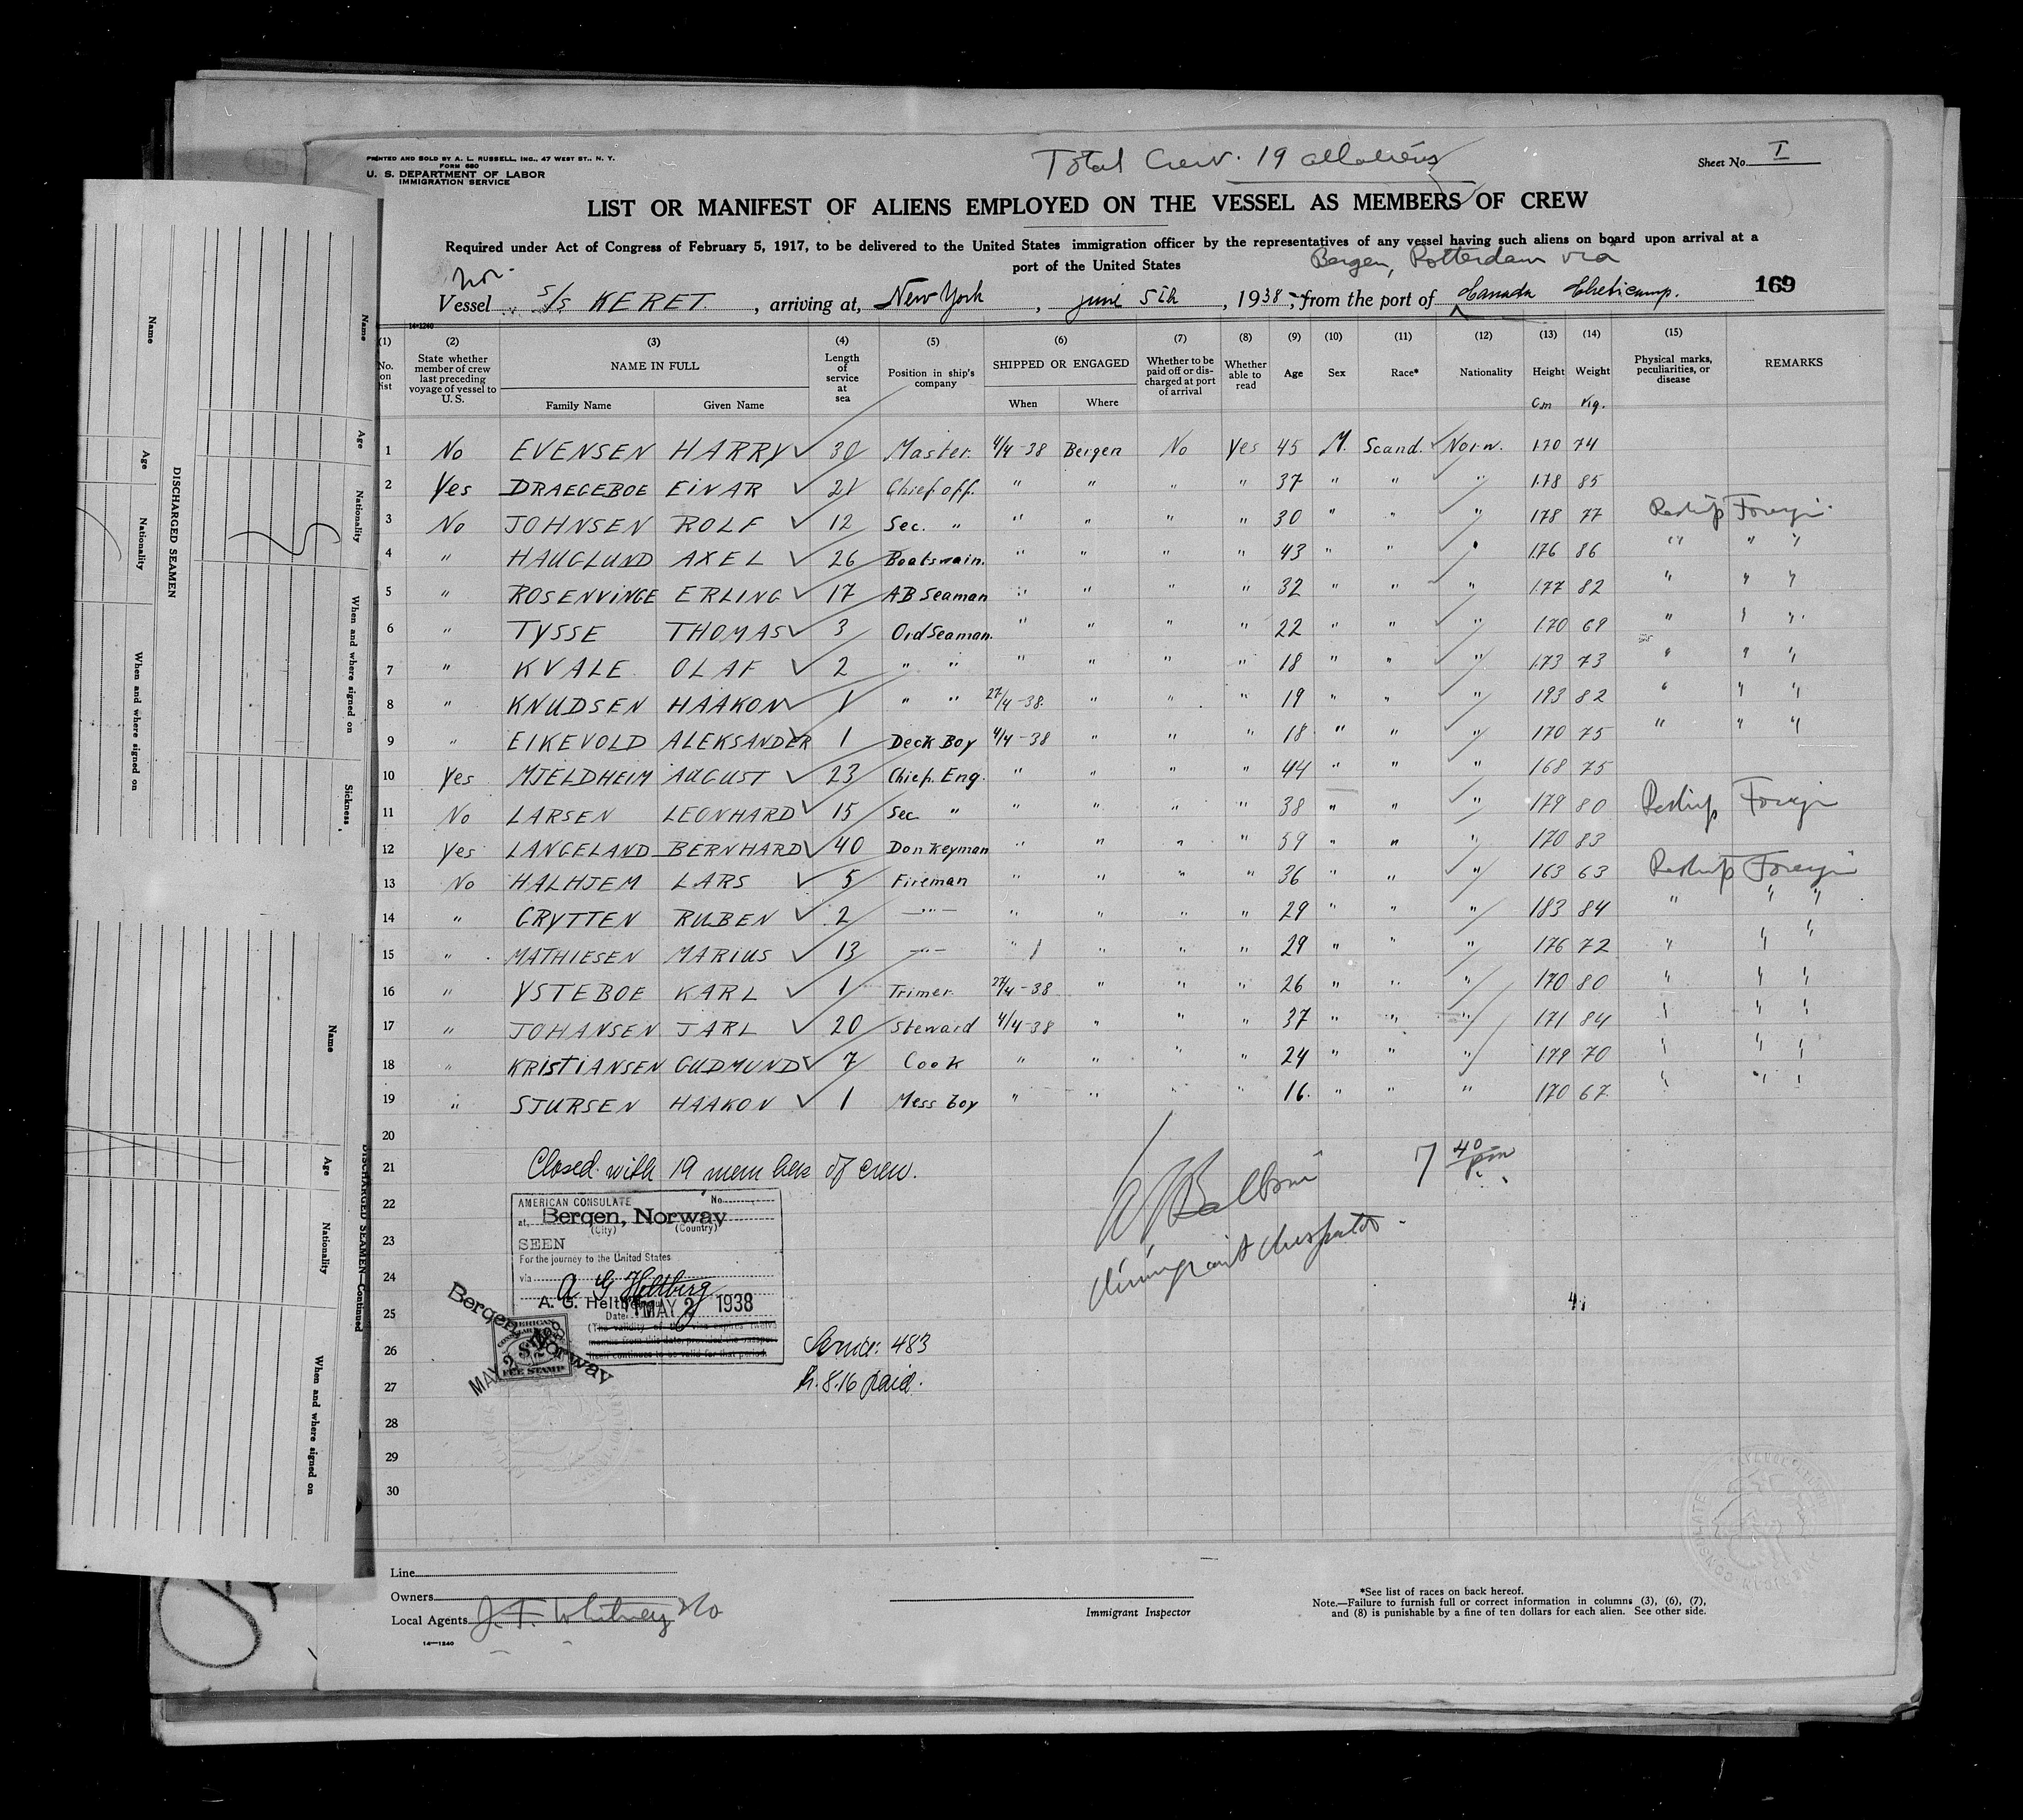 PRINTED AND SOLD BY A. L. RUSSELL, INC., 47 WEST ST., N. Y.
FORM 680
U. S. DEPARTMENT OF LABOR
IMMIGRATION SERVICE
Total Crew. 19 all aliens
Sheet No. I
LIST OR MANIFEST OF ALIENS EMPLOYED ON THE VESSEL AS MEMBERS OF CREW
Required under Act of Congress of February 5, 1917, to be delivered to the United States immigration officer by the representatives of any vessel having such aliens on board upon arrival at a
port of the United States
Bergen, Rotterdam via
Nor.
Vessel S/S KERET. , arriving at, New York , june 5th , 1938 , from the port of Canada Cheticamp.
169
14-1240
(1) (2) (3) (4) (5) (6) (7) (8) (9) (10) (11) (12) (13) (14) (15)
No. on list
State whether member of crew last preceding voyage of vessel to U. S.
NAME IN FULL
Family Name Given Name
Length of service at sea
Position in ship's company
SHIPPED OR ENGAGED
When Where
Whether to be paid off or discharged at port of arrival
Whether able to read
Age Sex Race* Nationality Height Weight
Cm Kg.
Physical marks, peculiarities, or disease
REMARKS
1 No EVENSEN HARRY 30 Master. 4/4-38 Bergen No Yes 45 M. Scand. Norw. 170 74
2 Yes DRAEGEBOE EINAR 21 Chief off. " " " " 37 " " " 178 85
3 No JOHNSEN ROLF 12 Sec. " " " " " 30 " " " 178 77 Reship Foreign.
4 " HAUGLUND AXEL 26 Boatswain. " " " " 43 " " " 176 86 " " "
5 " ROSENVINGE ERLING 17 AB Seaman " " " " 32 " " " 177 82 " " "
6 " TYSSE THOMAS 3 Ord Seaman. " " " " 22 " " " 170 69 " " "
7 " KVALE OLAF 2 " " " " " " 18 " " " 173 73 " " "
8 " KNUDSEN HAAKON 1 " " 27/4-38. " " " 19 " " " 193 82 " " "
9 " EIKEVOLD ALEKSANDER 1 Deck Boy 4/4-38 " " " 18 " " " 170 75 " " "
10 Yes MJELDHEIM AUGUST 23 Chief. Eng. " " " " 44 " " " 168 75
11 No LARSEN LEONHARD 15 Sec " " " " " 38 " " " 179 80 Reship Foreign
12 Yes LANGELAND BERNHARD 40 Donkeyman " " " " 59 " " " 170 83
13 No HALHJEM LARS 5 Fireman " " " " 36 " " " 163 63 Reship Foreign
14 " GRYTTEN RUBEN 2 —"— " " " " 29 " " " 183 84 " " "
15 " MATHIESEN MARIUS 13 —"— " " " " 29 " " " 176 72 " " "
16 " YSTEBOE KARL 1 Trimer 27/4-38 " " " 26 " " " 170 80 " " "
17 " JOHANSEN JARL 20 Steward 4/4-38 " " " 37 " " " 171 84 " " "
18 " KRISTIANSEN GUDMUND 7 Cook " " " " 24 " " " 179 70 " " "
19 " STURSEN HAAKON 1 Mess boy " " " " 16. " " " 170 67 " " "
20
21 Closed with 19 members of crew.
7 40 pm
22
23
24
25
26
27
28
29
30
AMERICAN CONSULATE No.
at, Bergen, Norway
(City) (Country)
SEEN
For the journey to the United States
via
A G Heltberg
A. G. Heltberg
Date: MAY 2 1938
(The validity of this visa expires twelve
months from this date, provided the passport
itself continues to be valid for that period.
Bergen, Norway
MAY 2 1938
AMERICAN
FEE STAMP
Service: 483
Kr. 8.16 paid.
Line
Owners
Local Agents J. F. Whitney & Co
14—1240
Immigrant Inspector
*See list of races on back hereof.
Note.—Failure to furnish full or correct information in columns (3), (6), (7),
and (8) is punishable by a fine of ten dollars for each alien. See other side.
DISCHARGED SEAMEN
Name Age Nationality When and where signed on Sickness,
Name Age Nationality When and where signed on
DISCHARGED SEAMEN—Continued
Name Age Nationality When and where signed on